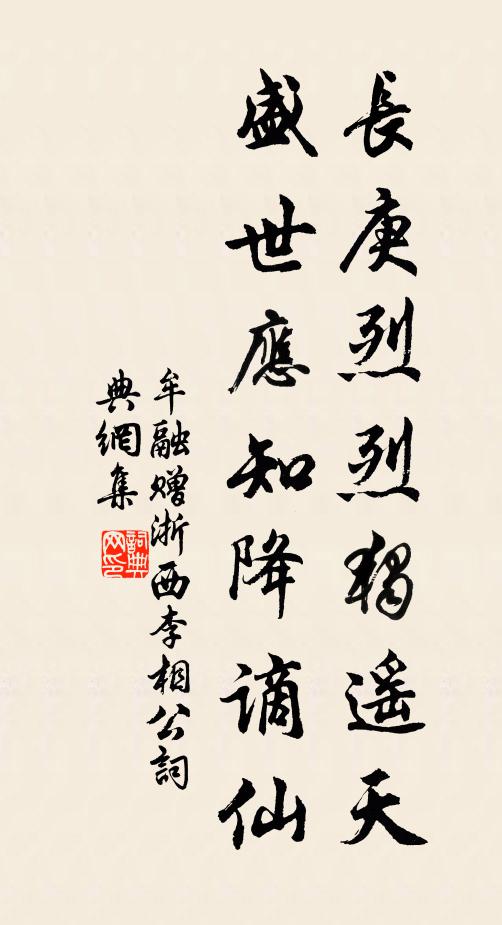 長庚烈烈獨遥天
盛世應知降謫仙
牟融贈浙西李相公詞
典網集
詞典网印